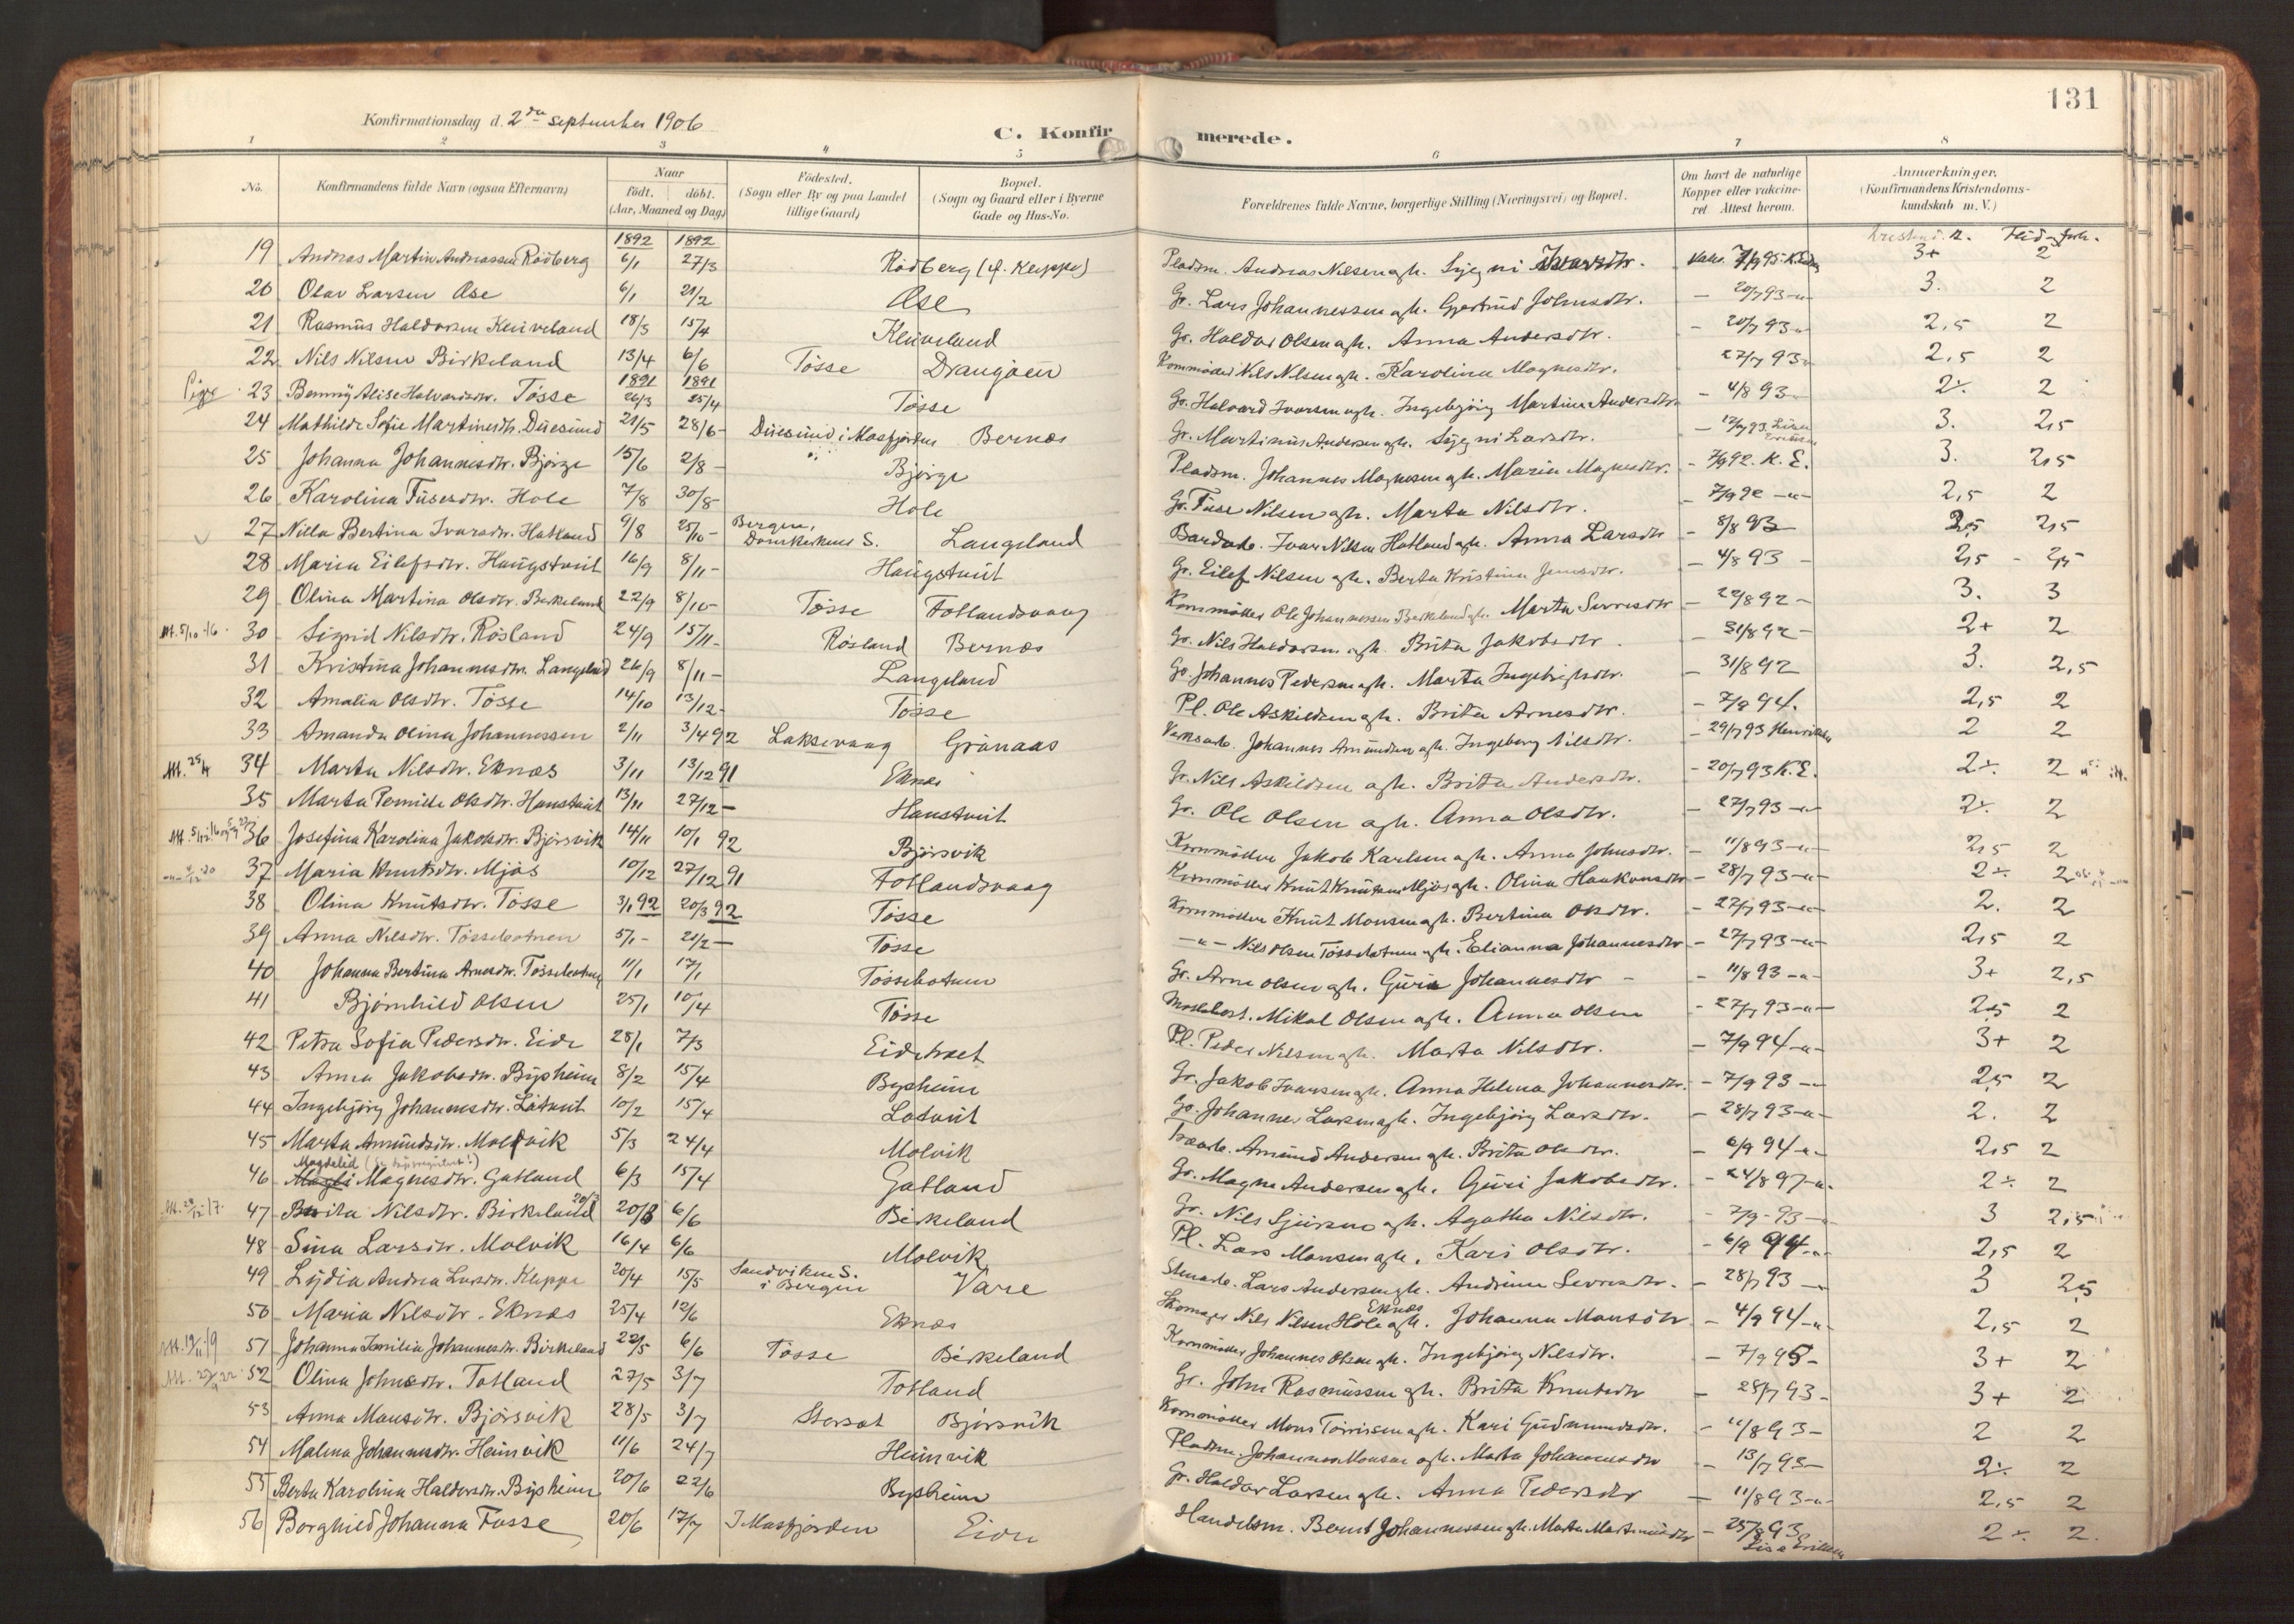 131
Konfirmationsdag d. 2den september 1906
C. Konfirmerede.
1 2 3 4 5 6 7 8
No.
Konfirmandens fulde Navn (ogsaa Efternavn)
Naar
födt. döbt.
(Aar, Maaned og Dag)
Födested.
(Sogn eller By og paa Landet tillige Gaard)
Bopæl.
(Sogn og Gaard eller i Byerne Gade og Hus-No.
Forældrenes fulde Navne, borgerlige Stilling (Næringsvei) og Bopæl.
Om havt de naturlige Kopper eller vakcineret. Attest herom.
Anmærkninger.
(Konfirmandens Kristendomskundskab m. V.)
1892 1892
19 Andreas Martin Andreassen Rödberg 6/1 27/3 Rödberg (u. Kleppe) Pladsm. Andreas Nilsen agh. Ivarsdtr. 3+ 2
20 Olav Larsen Ase 6/1 21/2 Ase Gr. Lars Johannessen agh. Gjertrud Johnsdtr. – 20/7 93 –"– 3. 2
21 Rasmus Haldorsen Kleiveland 18/3 15/4 Kleiveland Gr. Haldor Olsen agh. Anna Andersdtr. – 20/7 93 –"– 2,5 2
22 Nils Nilsen Birkeland 13/4 6/6 Tösse Drangöen Kornmöller Nils Nilsen agh. Karolina Magnesdtr. 27/7 93 2,5 2
1891 1891
Pige 23 Benny Alise Halvardsdtr. Tösse 26/3 25/4 Tösse Gr. Halvard Ivarsen agh. Ingebjörg Martina Andersdtr – 4/8 93 2÷ 2
24 Mathilde Sofie Martinesdtr. Duesund 21/5 28/6 – Duesund i Masfjorden Bernæs Gr. Martinus Andersen agh. Larsdtr. 3. 2,5
25 Johanna Johannesdtr. Bjørge 15/6 2/8 – Bjørge Pladsm. Johannes Magnesen agh. Maria Magnesdtr. – 7/9 92. K. E. 3. 2,5
26 Karolina Fusesdtr. Hole 7/8 30/8 – Hole Gr. Fuse Nilsen agh. Marta Nilsdtr. – 7/9 92 –"– 2,5 2
27 Nilla Bertina Ivarsdtr. Hatland 9/8 25/10 – Bergen, Domkirkens S. Langeland Ivar Nilsen Hatland agh. Anna Larsdtr – 8/8 93 2,5 2,5
28 Maria Eilefsdtr. Haugstveit 16/9 8/11 – Haugstveit Gr. Eilef Nilsen agh. Berta Kristina Jensdtr. – 4/8 93 – 2,5 – 2,5
29 Olina Martina Olsdtr. Birkeland 22/9 8/10 – Tösse Fotlandsvaag Kornmöller Ole Johannessen Birkeland agh. Marta Sverresdtr – 22/8 92 – 3. 3
Att. 5/10 -16. 30 Sigrid Nilsdtr. Rösland 24/9 15/11 – Rösland Bernæs Gr. Nils Haldorsen agh. Brita Jakobsdtr – 31/8 92 – 2+ 2
31 Kristina Johannesdtr. Langeland 26/9 8/11 – Langeland Gr. Johannes Pedersen agh. Marta Ingebrigtsdtr. – 31/8 92 3. 2,5
32 Amalia Olsdtr. Tösse 14/10 13/12 – Tösse Pl. Ole Askildsen agh. Brita Arnesdtr. – 7/9 94. 2,5 2
33 Amanda Olina Johannessen 2/11 3/4 92 Laksevaag Grönaas Johannes Amundsen agh. Ingeborg Nilsdtr. – 29/7 93 Henriksen 2 2
Att. 34 Marta Nilsdtr. Eknæs 3/11 13/12 91 Eknæs Gr. Nils Askildsen agh. Brita Andersdtr. – 20/7 93 K. E. 2÷ 2
35 Marta Pernille Olsdtr. Hanstveit 13/11 27/12 – Hanstveit Gr. Ole Olsen agh. Anna Olsdtr. – 27/7 93 –"– 2÷ 2
36 Josefina Karolina Jakobsdtr. Bjørsvik 14/11 10/1 92 Bjørsvik Kornmöller Jakob Karlsen agh. Anna Johnsdtr. – 11/8 93 –"– 2,5 2
37 Maria Knutsdtr. Mjøs 10/12 27/12 91 Fotlandsvaag Kornmöller Knut Knutsen Mjøs agh. Olina Haakonsdtr – 28/7 93 –"– 2÷ 2
38 Olina Knutsdtr. Tösse 3/1 92 20/3 92 Tösse Kornmöller Knut Monsen agh. Bertina Olsdtr. – 27/7 93 –"– 2. 2
39 Anna Nilsdtr. Tössebotnen 5/1 – 21/2 – Tösse –"– Nils Olsen Tössebotnen agh. Elianna Johannesdtr – 27/7 93 –"– 2,5 2
40 Johanna Bertina Arnesdtr. Tössebotnen 11/1 17/1 Tössebotnen Gr. Arne Olsen agh. Guri Johannesdtr – – 11/8 93 –"– 3+ 2,5
41 Bjørnhild Olsen 25/1 10/4 Tösse Mikal Olsen agh. Anna Olsen – 27/7 93 –"– 2,5 2
42 Petra Sofia Pedersdtr. Eide 28/1 7/3 Eidetræet Pl. Peder Nilsen agh. Marta Nilsdtr. – 7/9 94 –"– 3+ 2
43 Anna Jakobsdtr. Bysheim 8/2 15/4 Bysheim Gr. Jakob Ivarsen agh. Anna Helena Johannesdtr. – 7/9 93 –"– 2,5 2
44 Ingebjörg Johannesdtr. Låtveit 10/2 15/4 Låtveit Gr. Johannes Larsen agh. Ingebjörg Larsdtr. – 28/7 93 –"– 2. 2
45 Marta Amundsdtr. Molvik 5/3 24/4 Molvik Amund Andersen agh. Brita Olsdtr. – 6/9 94 –"– 2,5 2
Magdelid
46 Magli Magnesdtr. Gatland 6/3 15/4 Gatland Gr. Magne Andersen agh. Guri Jakobsdtr. – 24/8 97 –"– 2÷ 2
47 Brita Nilsdtr. Birkeland 20/3 6/6 Birkeland Gr. Nils Sjursen agh. Agatha Nilsdtr. – 7/9 93 – 3 2,5
48 Sina Larsdtr. Molvik 16/4 6/6 Molvik Pl. Lars Monsen agh. Kari Olsdtr. – 6/9 94 –"– 2,5 2
49 Lydia Andrea Larsdtr. Kleppe 20/4 15/5 Sandvikens S. i Bergen Vare Stenarb. Lars Andersen agh. Andrina Sverresdtr. – 28/7 93 –"– 3 2,5
50 Maria Nilsdtr. Eknæs 25/4 12/6 Eknæs Skomager Nils Nilsen Hole Eknæs agh. Johanna Monsdtr – 4/9 94 –"– 2,5 2
51 Johanna Emilia Johannesdtr. Birkeland 22/5 6/6 Tösse Birkeland Kornmöller Johannes Olsen agh. Ingebjörg Nilsdtr. – 7/9 95 – 3+ 2
52 Olina Johnsdtr. Totland 27/5 3/7 Totland Gr. John Rasmussen agh. Brita Knutsdtr – 28/7 93 – 3+ 2
53 Anna Monsdtr. Bjørsvik 28/5 3/7 Bjørsvik Kornmöller Mons agh. Kari Gudmundsdtr. – 11/8 93 – 2 2
54 Malena Johannesdtr. Heimvik 11/6 24/7 Heimvik Pladsm. Johannes Monsen agh. Marta Johannesdtr – 13/7 95 – 2÷ 2
55 Berta Karolina Haldorsdtr. Bysheim 20/6 22/6 Bysheim Gr. Haldor Larsen agh. Anna Pedersdtr – 11/8 93 –"– 2,5 2
56 Borghild Johanna Fosse 20/6 17/7 I Masfjorden Eide Handelsm. Bernt Johannessen agh. Marta Martinusdtr – 25/8 93 Lisa Eriksen 2÷ 2.